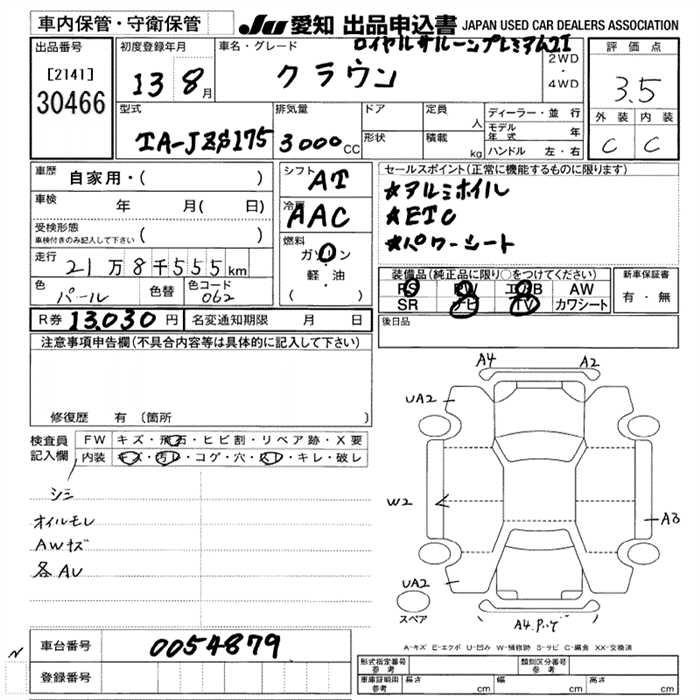 車内保管・守衛保管
JU 愛知 出品申込書 JAPAN USED CAR DEALERS ASSOCIATION
出品番号
[2141]
30466
初度登録年月
13 8月
車名・グレード
ロイヤルサルーンプレミアム21
クラウン
2WD
・
4WD
評価点
3.5
外装 内装
C C
型式
TA-JZS175
排気量
3000CC
ドア
形状
定員 人
積載 kg
ディーラー・並行
モデル年式 年
ハンドル 左・右
車歴 自家用・( )
車検 年 月( 日)
受検形態
車検付きのみ記入して下さい ( )
走行 21万8千555km
色 パール
色替
色コード 062
シフト AT
冷房 AAC
燃料
ガソリン
軽・油
( )
セールスポイント(正常に機能するものに限ります)
★アルミホイル
★ETC
★パワーシート
装備品(純正品に限り○をつけてください)
PS PW エアB AW
SR ナビ TV カワシート
新車保証書
有・無
後日品
R券 13,030円
名変通知期限 月 日
注意事項申告欄(不具合内容等は具体的に記入して下さい)
修復歴 有 (箇所 )
検査員記入欄
FW キズ・飛石・ヒビ割・リペア跡・X要
内装 キズ・汚レ・コゲ・穴・スレ・キレ・破レ
シミ
オイルモレ
AWキズ
各AU
A4 A2
UA2
W2
A3
UA2
スペア
A4.P.ハゲ
A-キズ E-エクボ U-凹み W-補修跡 S-サビ C-腐食 XX-交換済
車台番号 0054879
登録番号
形式指定番号 参考
類別区分番号 参考
車庫証明用 参考
長さ cm
幅 cm
高さ cm